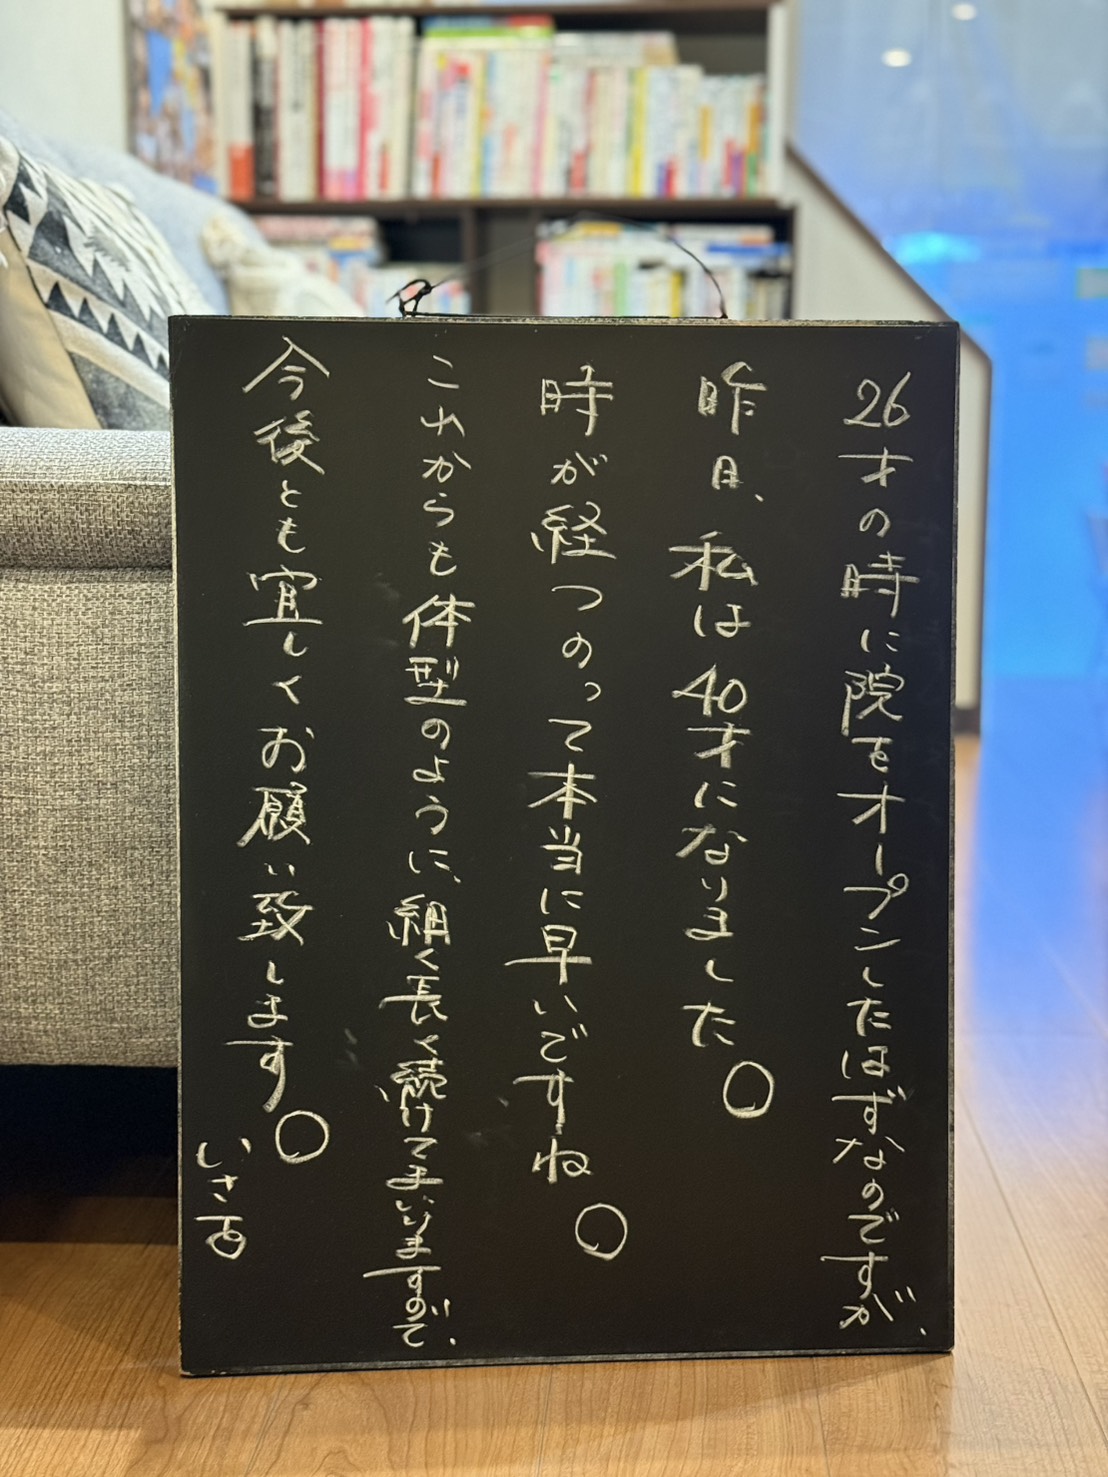 26才の時に院をオープンしたはずなのですが、
昨日、私は40才になりました。
時が経つのって本当に早いですね。
これからも体型のように、細く長く続けてまいりますので、
今後とも宜しくお願い致します。
いさ